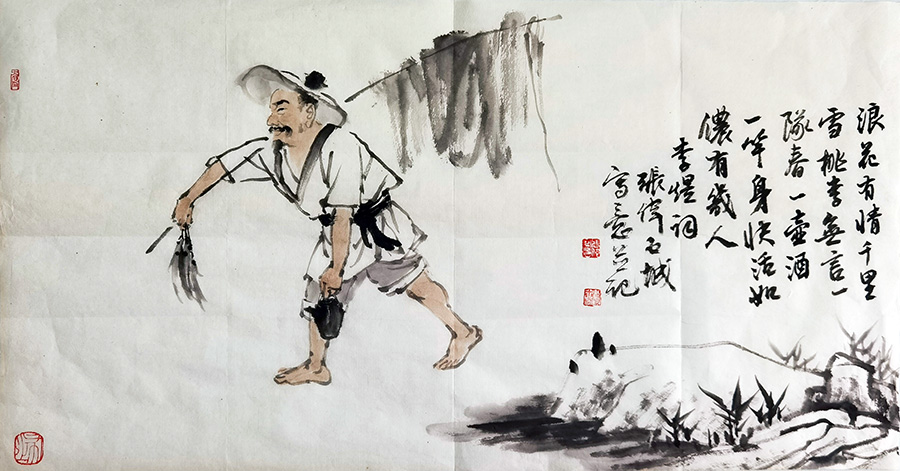 浪花有情千里
雪桃李無言一
隊春一壺酒
一竿身快活如
儂有幾人
李煜詞
張偉石城
寫意並記